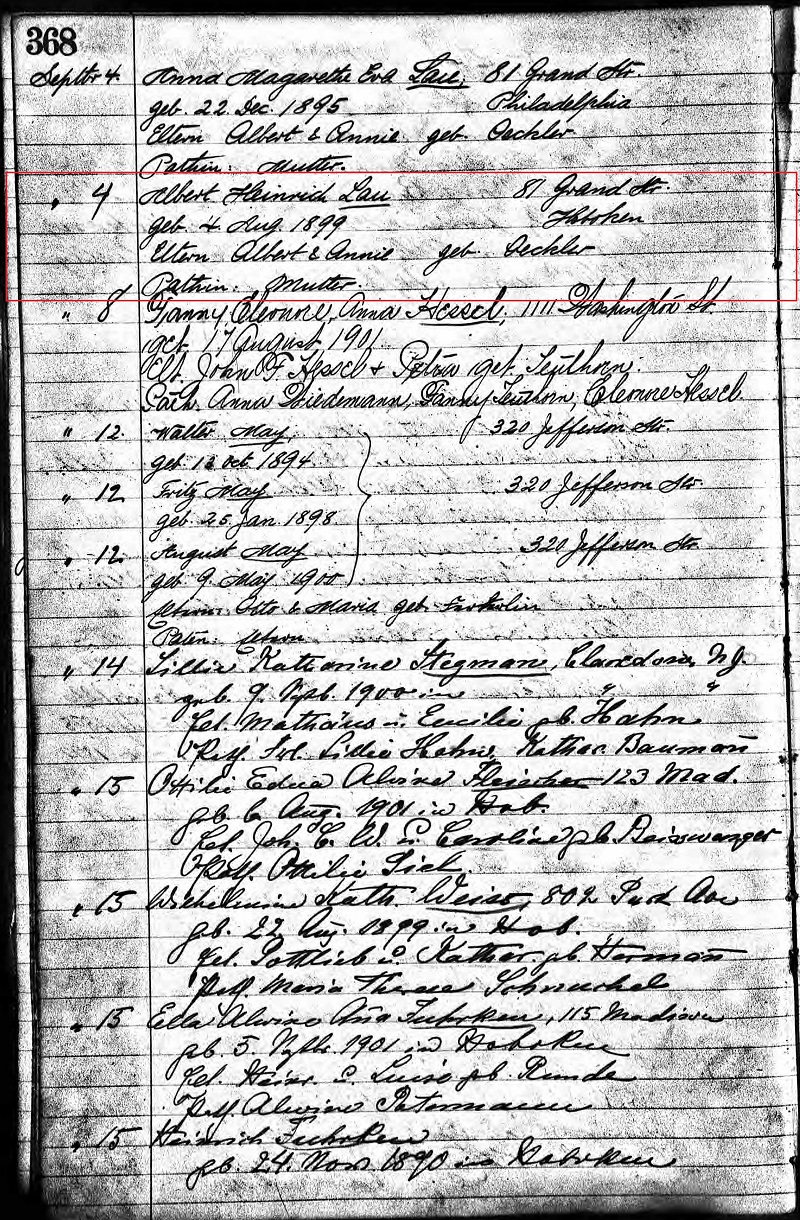 368
Septbr 4. Anna Magarethe Eva Lau, 81 Grand Str.
geb. 22. Dec. 1895 Philadelphia
Eltern Albert & Annie geb. Oechler
Pathin: Mutter.
" 4 Albert Heinrich Lau 81 Grand Str.
geb. 4. Aug. 1899 Hoboken
Eltern Albert & Annie geb. Oechler
Pathin: Mutter.
" 8 Fanny, Eleonore, Anna Hessel, 1111 Washington St.
get. 17 August, 1901
Elt. John F. Hessel & Petra get. Teuthorn.
Path. Anna Wiedemann, Fanny Teuthorn, Eleonore Hessel.
" 12. Walter May, 320 Jefferson Str.
geb. 12 Oct. 1894
" 12 Fritz May 320 Jefferson Str
geb. 25 Jan. 1898
" 12 August May 320 Jefferson Str
geb. 9. May 1900
Eltern: Otto & Maria geb.
Paten: Eltern
" 14 Lillie Katharine Stegman, N.J.
geb. 9. Septb. 1900 in " "
Elt. Mathäus u. Emilie gb. Hahn
Path. Frl. Lillie Hahn, Kathar. Bauman
" 15 Ottilie Edna Alvine Fleischer 123 Mad.
gb. 6 Aug. 1901 in Hob.
Elt. Joh. C. W. u. Caroline gb. Beisswanger
Path. Ottilie
" 15 Wilhelmine Kath. Weiss, 802 Park Ave
gb. 27 Aug. 1899 in Hob.
Elt. Gottlieb u. Kathar. gb. Herman
Path. Maria Therese
" 15 Ella Alvine Ana Fuhrken, 115 Madison
gb. 5. Septbr. 1901 in Hoboken
Elt. Heinr. u. Luise gb. Runde
Path Alwine Petermann
" 15 Heinrich Fuhrken
gb. 24. Nov. 1890 in Hoboken